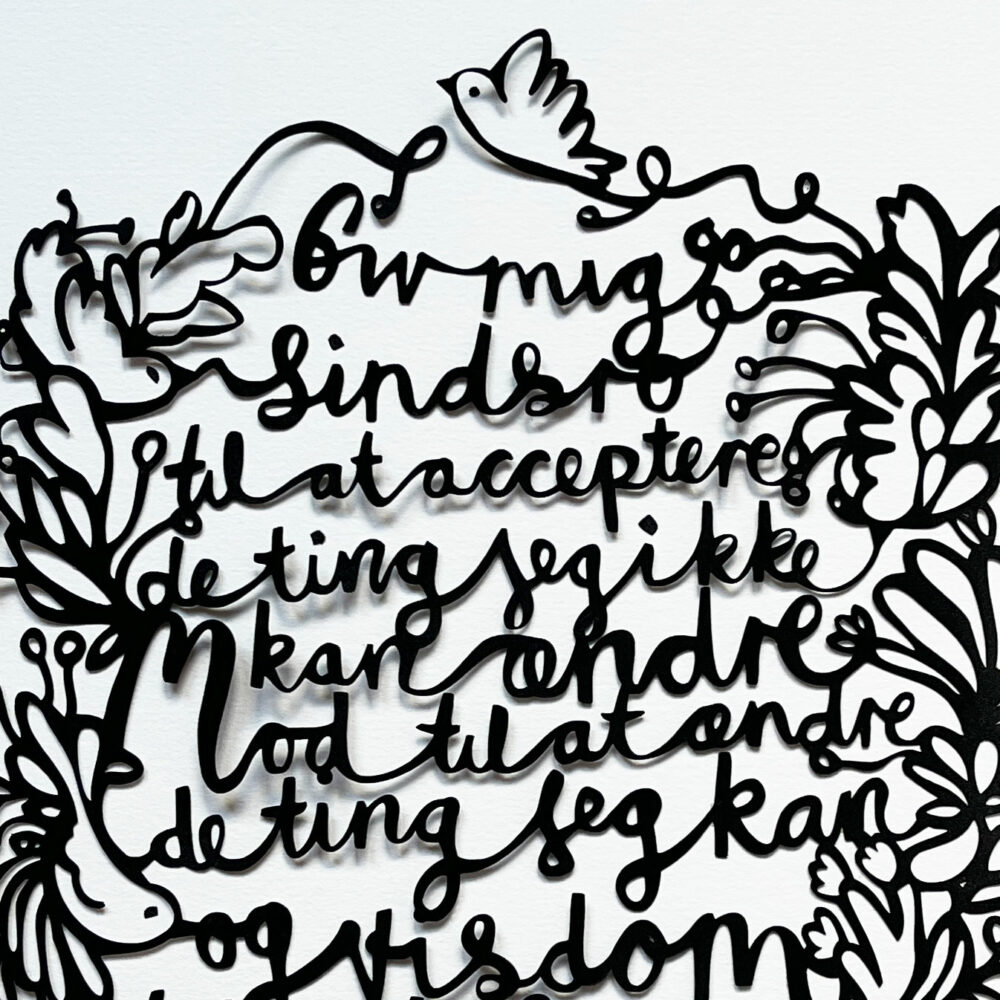 Giv mig
Sindsro
til at acceptere
de ting jeg ikke
kan ændre
Mod til at ændre
de ting jeg kan
og visdom